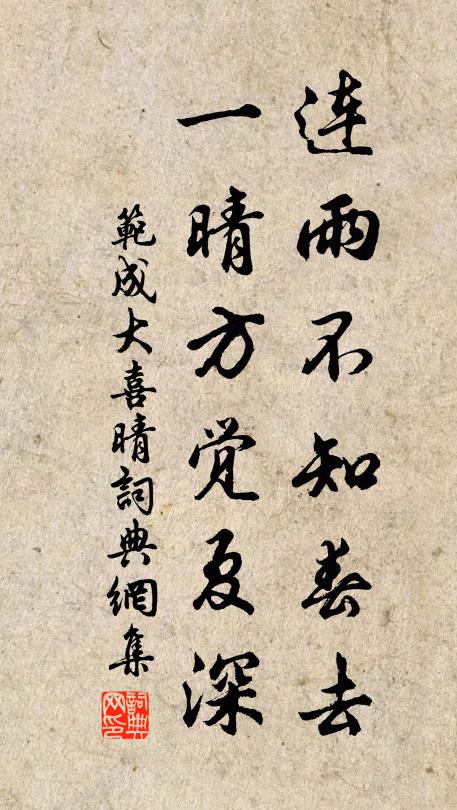 连雨不知春去
一晴方觉夏深
範成大喜晴詞典網集
詞典网印